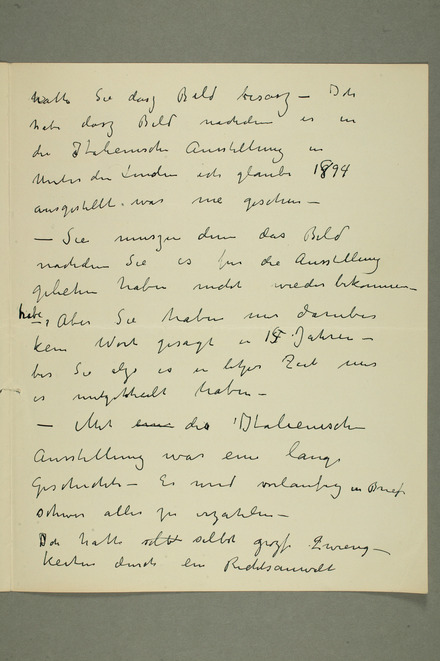 hatte Sie dasz Bild besasz – Ich
habe dasz Bild nachdem es in
die Italienische Ausstellung in
Unter den Linden ich glaube 1894
ausgestellt was nie gesehen –
– Sie muszen denn das Bild
nachdem Sie es für die Ausstellung
geliehen haben nicht wieder bekommen
habe –, Aber Sie haben mir darüber
kein Wort gesagt in 15 Jahren –
bis Sie es in letzer Zeit mir
es mitgetheilt haben –
– Mit eine die Italienische
Ausstellung war eine lange
Geschichte – Es wird vorläufig in Brief
schwer alles zu erzahlen –
Ich hatte selbst
durch ein Rechtsanwalt